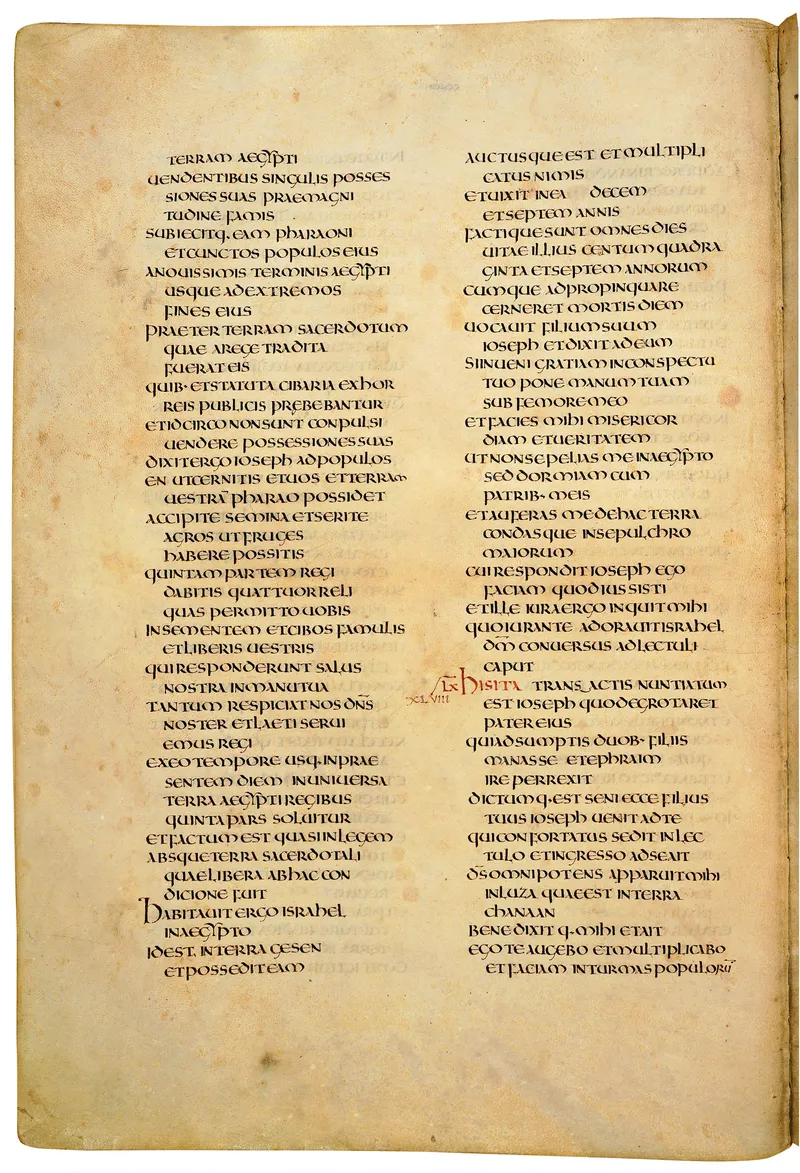 TERRAM AEGYPTI
UENDENTIBUS SINGULIS POSSES
SIONES SUAS PRAE MAGNI
TUDINE FAMIS
SUBIECITQ· EAM PHARAONI
ET CUNCTOS POPULOS EIUS
A NOUISSIMIS TERMINIS AEGYPTI
USQUE AD EXTREMOS
FINES EIUS
PRAETER TERRAM SACERDOTUM
QUAE A REGE TRADITA
FUERAT EIS
QUIB· ET STATUTA CIBARIA EX HOR
REIS PUBLICIS PRĘBEBANTUR
ET IDCIRCO NON SUNT CONPULSI
UENDERE POSSESSIONES SUAS
DIXIT ERGO IOSEPH AD POPULOS
EN UT CERNITIS ET UOS ET TERRAM
UESTRĀ PHARAO POSSIDET
ACCIPITE SEMINA ET SERITE
AGROS UT FRUGES
HABERE POSSITIS
QUINTAM PARTEM REGI
DABITIS QUATTUOR RELI
QUAS PERMITTO UOBIS
IN SEMENTEM ET CIBOS FAMULIS
ET LIBERIS UESTRIS
QUI RESPONDERUNT SALUS
NOSTRA IN MANU TUA
TANTUM RESPICIAT NOS DN̅S
NOSTER ET LAETI SERUI
EMUS REGI
EX EO TEMPORE USQ· IN PRAE
SENTEM DIEM IN UNIUERSA
TERRA AEGYPTI REGIBUS
QUINTA PARS SOLUITUR
ET FACTUM EST QUASI IN LEGEM
ABSQUE TERRA SACERDOTALI
QUAE LIBERA AB HAC CON
DICIONE FUIT
HABITAUIT ERGO ISRAHEL
IN AEGYPTO
ID EST· IN TERRA GESEN
ET POSSEDIT EAM
AUCTUSQUE EST ET MULTIPLI
CATUS NIMIS
ET UIXIT IN EA DECEM
ET SEPTEM ANNIS
FACTIQUE SUNT OMNES DIES
UITAE ILLIUS CENTUM QUADRA
GINTA ET SEPTEM ANNORUM
CUMQUE ADPROPINQUARE
CERNERET MORTIS DIEM
UOCAUIT FILIUM SUUM
IOSEPH ET DIXIT AD EUM
SI INUENI GRATIAM IN CONSPECTU
TUO PONE MANUM TUAM
SUB FEMORE MEO
ET FACIES MIHI MISERICOR
DIAM ET UERITATEM
UT NON SEPELIAS ME IN AEGYPTO
SED DORMIAM CUM
PATRIB· MEIS
ET AUFERAS ME DE HAC TERRA
CONDASQUE IN SEPULCHRO
MAIORUM
CUI RESPONDIT IOSEPH EGO
FACIAM QUOD IUSSISTI
ET ILLE IURA ERGO INQUIT MIHI
QUO IURANTE ADORAUIT ISRAHEL
DM̅ CONUERSUS AD LECTULI
CAPUT
LX HIS ITA TRANSACTIS NUNTIATUM
XLVIII EST IOSEPH QUOD EGROTARET
PATER EIUS
QUI ADSUMPTIS DUOB· FILIIS
MANASSE ET EPHRAIM
IRE PERREXIT
DICTUMQ· EST SENI ECCE FILIUS
TUUS IOSEPH UENIT AD TE
QUI CONFORTATUS SEDIT IN LEC
TULO ET INGRESSO AD SE AIT
DS̅ OMNIPOTENS APPARUIT MIHI
IN LUZA QUAE EST IN TERRA
CHANAAN
BENEDIXITQ· MIHI ET AIT
EGO TE AUGEBO ET MULTIPLICABO
ET FACIAM IN TURMAS POPULORŪ